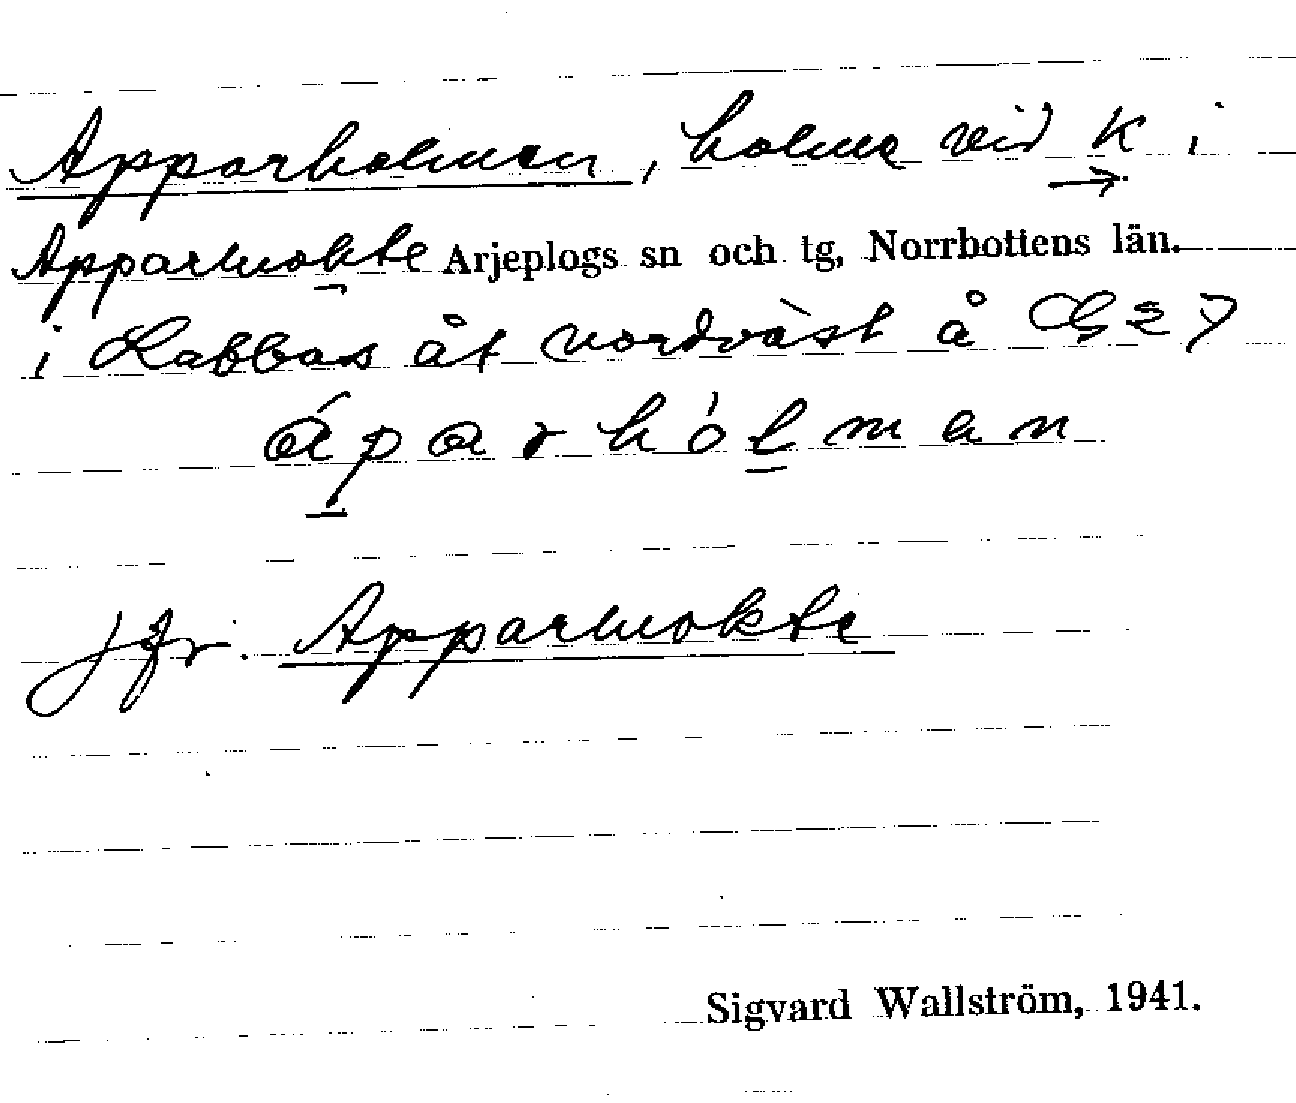 Apparholmen, holme vid K i
Apparluokte Arjeplogs sn och tg, Norrbottens län.
i Labbas åt nordväst å G27
áparhólman
jfr. Apparluokte
Sigvard Wallström, 1941.